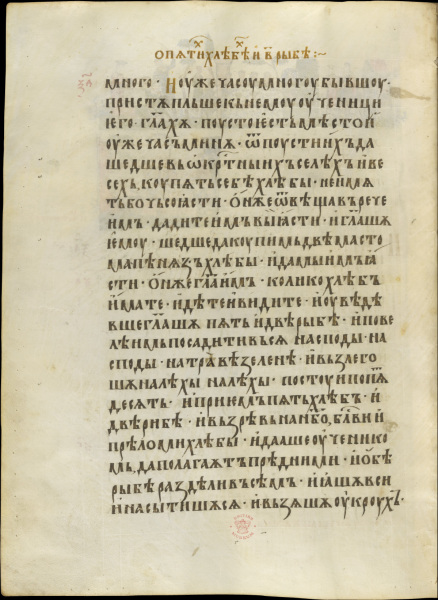 о пѧтихⷯ хлѣбѣⷯ и в҃ рыбѣ :~
много · И оуже часоу многоу бывшоу ·
пристѫпльше къ немоу оученици
его · гл҃ахѫ · поусто ѥстъ мѣсто и
оуже часъ минѫ · ѿпоусти ихъ да
шедше въ ѡкрⷭ҇тныихъ селѣхъ и ве
сехъ, коупѧть себѣ хлѣбы · не имѫ
тъ бо чьсо ꙗсти · Онже ѿвѣщавъ рече
имъ · дадите имъ вы ꙗсти · и гл҃ашѫ
ѥмоу · шедше да коупимь двѣма сто
ма пѣнѧзъ хлѣбы · и дамы имъ ꙗ
сти · Онже гл҃а имъ · колико хлѣбъ
имате · идѣте и видите · и оувѣдѣ
вше гл҃ашѫ пѧть и двѣ рыбѣ · и пове
лѣ имь посадити всѧ на споды · на
споды · на травѣ зеленѣ · и възлего
шѫ на лѣхы на лѣхы · по стоу и по пⷮѧ
десѧть · и приимъ пѧть хлѣбъ · и
двѣ рибѣ · и възрѣвь на нб҃о, бл҃ви и
прѣломи хлѣбы · и даꙗше оученико
мь, да полагаѫтъ прѣд ними · и обѣ
рыбѣ раздѣли въсѣмъ · и ꙗшѫ вси
и насытишѫсѧ · и възѧшѫ оукроухꙿ ·